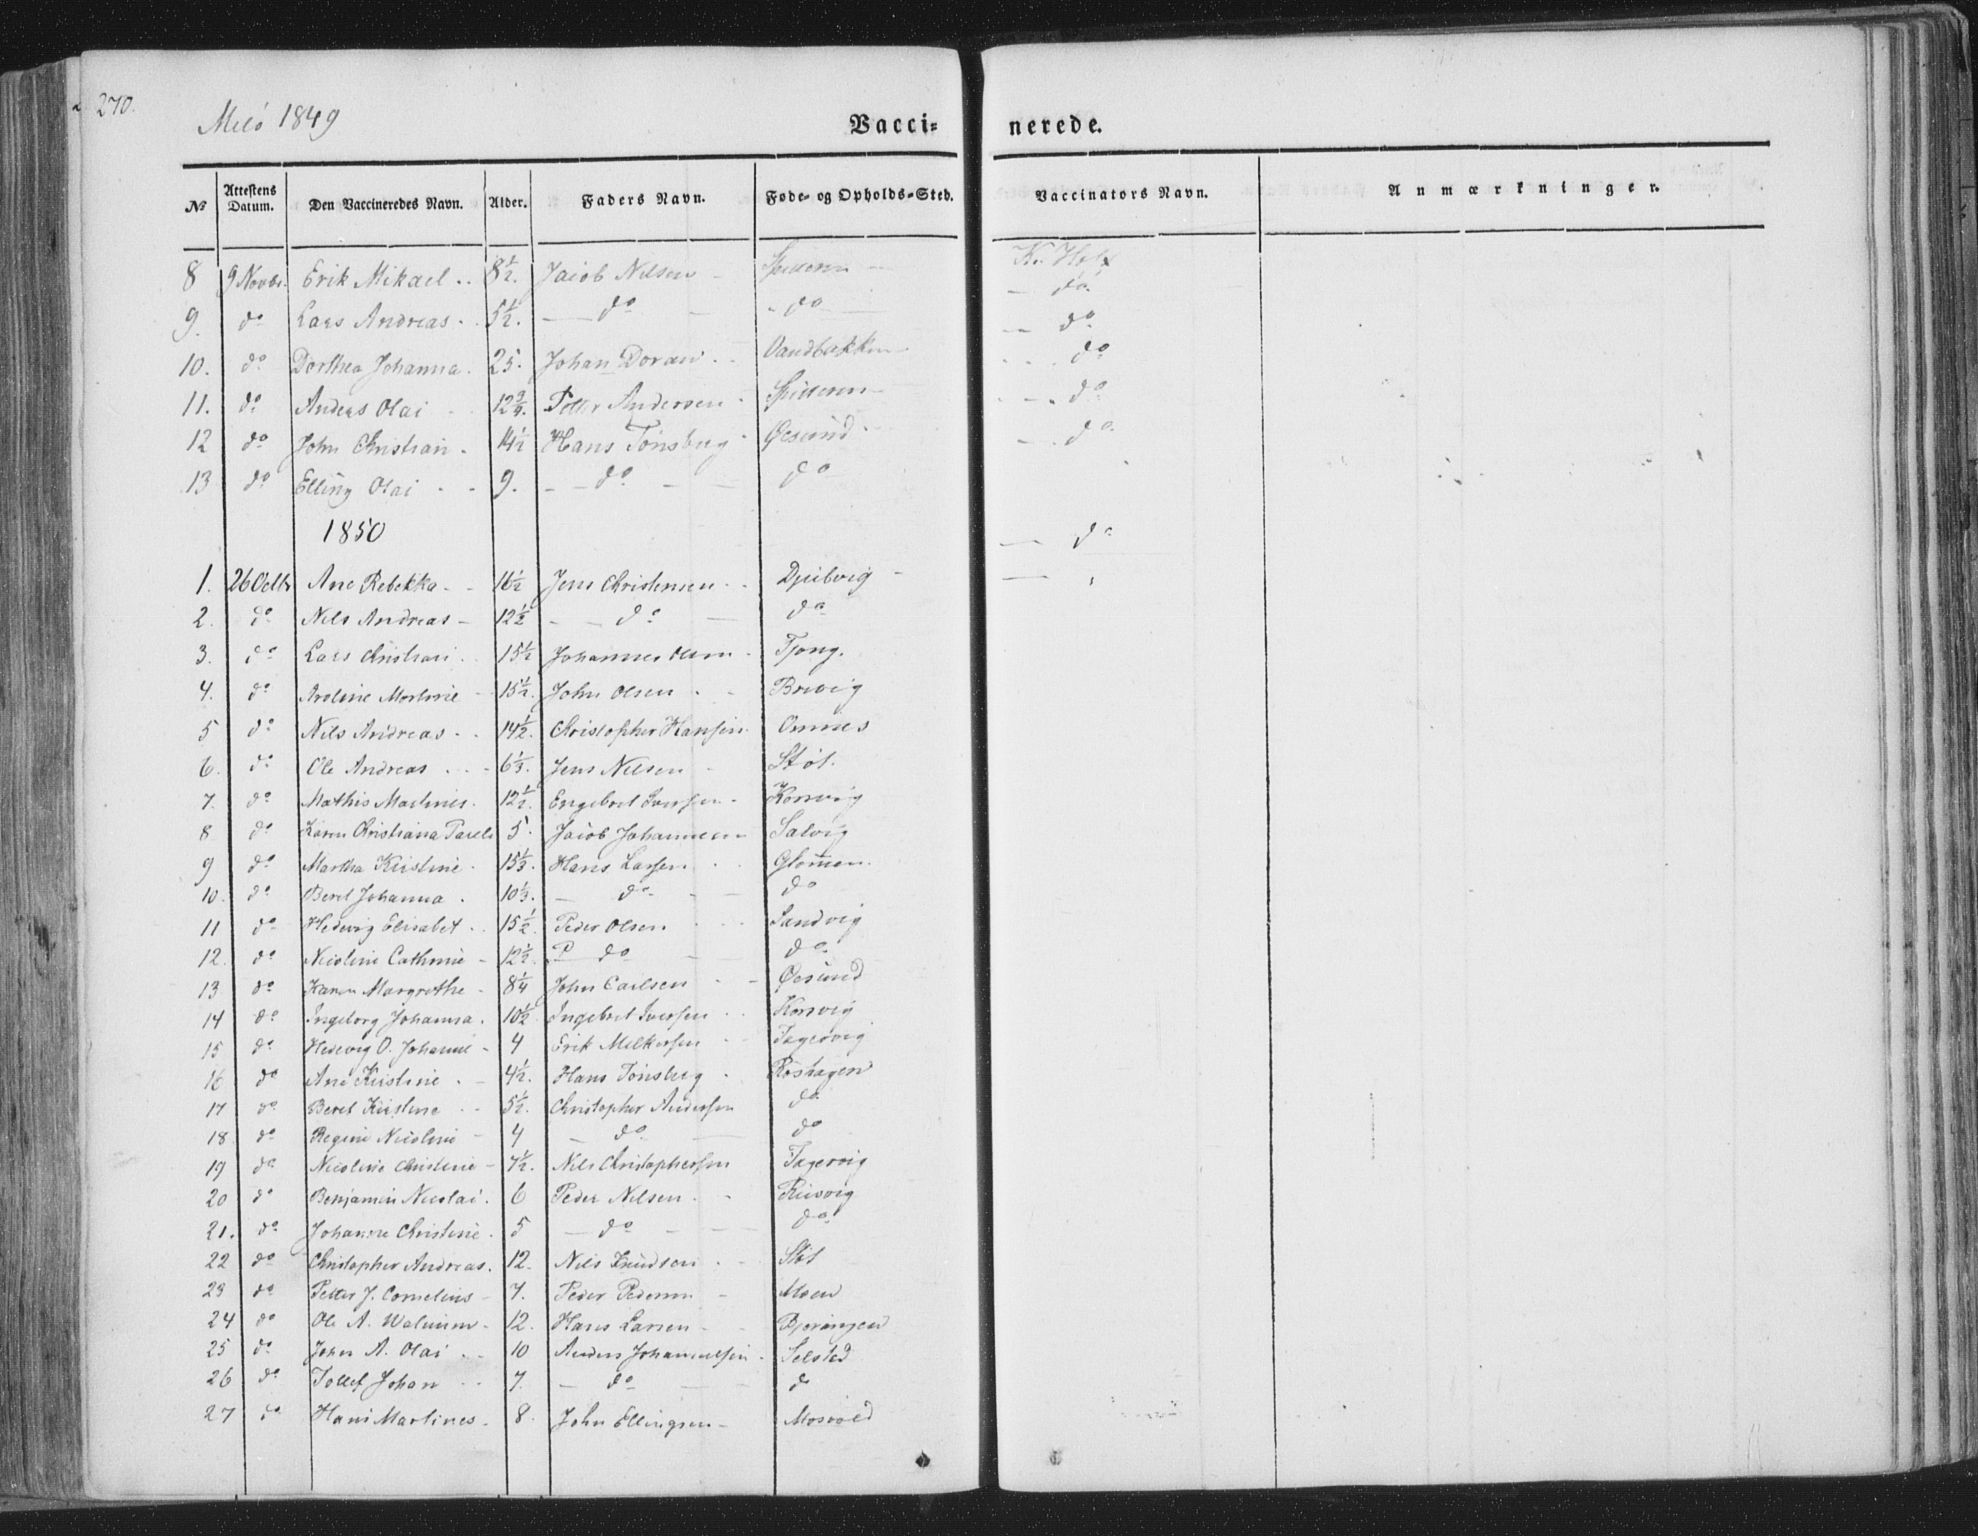 270.
Melö 1849
Vacci- nerede.
No Attestens Datum. Den Vaccineredes Navn. Alder. Faders Navn. Føde- og Opholds-Sted. Vaccinators Navn. Anmærkninger.
8 9 Novbr. Erik Mikael 8½. Jacob Nilsen K. Holst
9. do Lars Andreas 5½. do do do
10. do Dorthea Johanna. 25. Johan Doran Vandbakken do
11. do Anders Olai 12¾. Petter Andersen do
12 do John Christian 14½ Hans Tönsberg Øesund do
13 do Elling Olai 9. do do do
1850 do
1. 26 Octbr Ane Rebekka 16½ Jens Christensen Djubvig
2. do Nils Andreas 12½ do do
3. do Lars Christian 15½ Johannes Olsen Tjong.
4. do Aroline Martine 15½. John Olsen Brevig
5 do Nils Andreas 14½. Christopher Hansen Onnes
6. do Ole Andreas 6⅓. Jens Nilsen Støt.
7. do Mathis Martines. 12½. Engebret Iversen Korsvig
8 do Karen Christiana Parelli 5. Jacob Johannesen Salvig
9 do Martha Kirstine 15⅓. Hans Larsen Glommen.
10. do Beret Johanna 10⅓. do do
11 do Hedevig Elisabet 15½. Peder Olsen Sandvig
12. do Nicoline Cathrine 12½. P do do
13 do Karen Margrethe 8¼ John Carlsen Øesund
14 do Ingeborg Johanna. 10½ Ingebret Iversen Korsvig
15 do Hedevig O. Johanne 4 Erik Melkersen Fagervig
16 do Ane Kirstine 4½. Hans Tönsberg Roshagen
17 do Beret Kirstine 5½. Christopher Andersen do
18 do Regine Nicoline 4 do do
19 do Nicoline Christine 7½. Nils Christophersen Fagervig
20 do Benjamin Nicolai. 6 Peder Nilsen Riisvig
21. do Johanne Christine. 5 do do
22 do Christopher Andreas. 12. Nils Knudsen Støt
23 do Petter J. Cornelius 7. Peder Pedersen Moen
24 do Ole A. 12. Hans Larsen Bjerangen
25 do John A. Olai 10 Anders Johannessen Selsted
26 do Tollef Johan 7. do do
27 do Hans Martines 8. John Ellingsen Mosvold